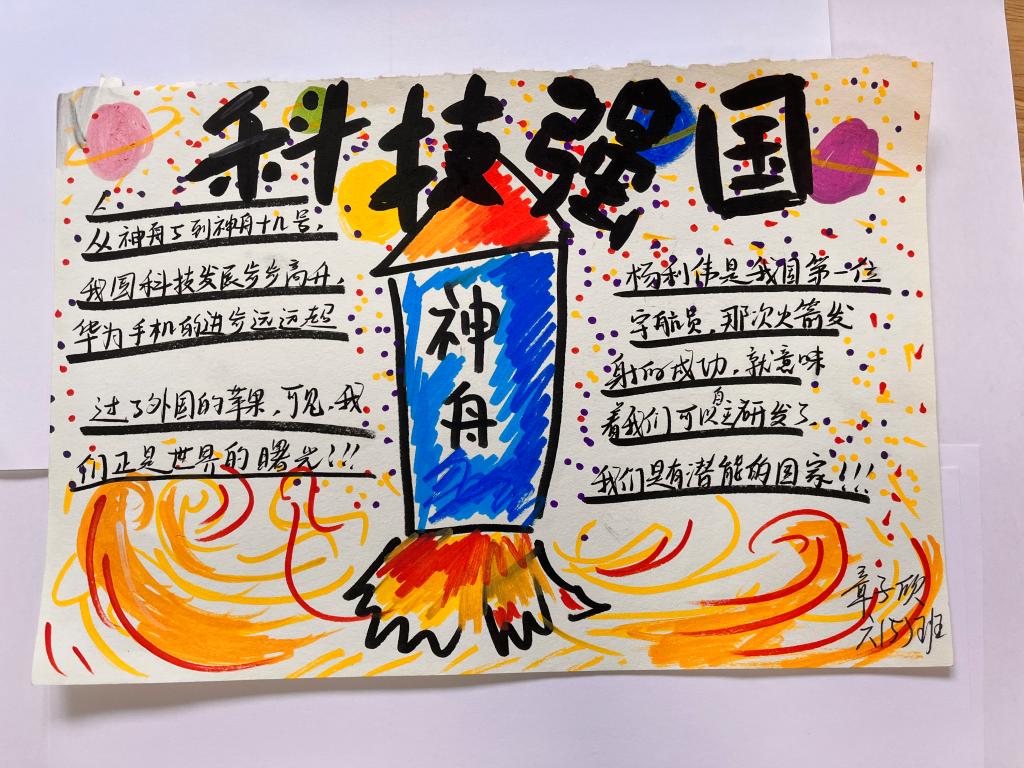 科技强国
从神舟5到神舟十九号,
我国科技发展步步高升,
华为手机的进步远远超
过了外国的苹果,可见,我
们正是世界的曙光!!!
神
舟
杨利伟是我国第一位
宇航员,那次火箭发
射的成功,就意味
着我们可以自主研发了,
我们是有潜能的国家!!!
章子硕
六(5)班